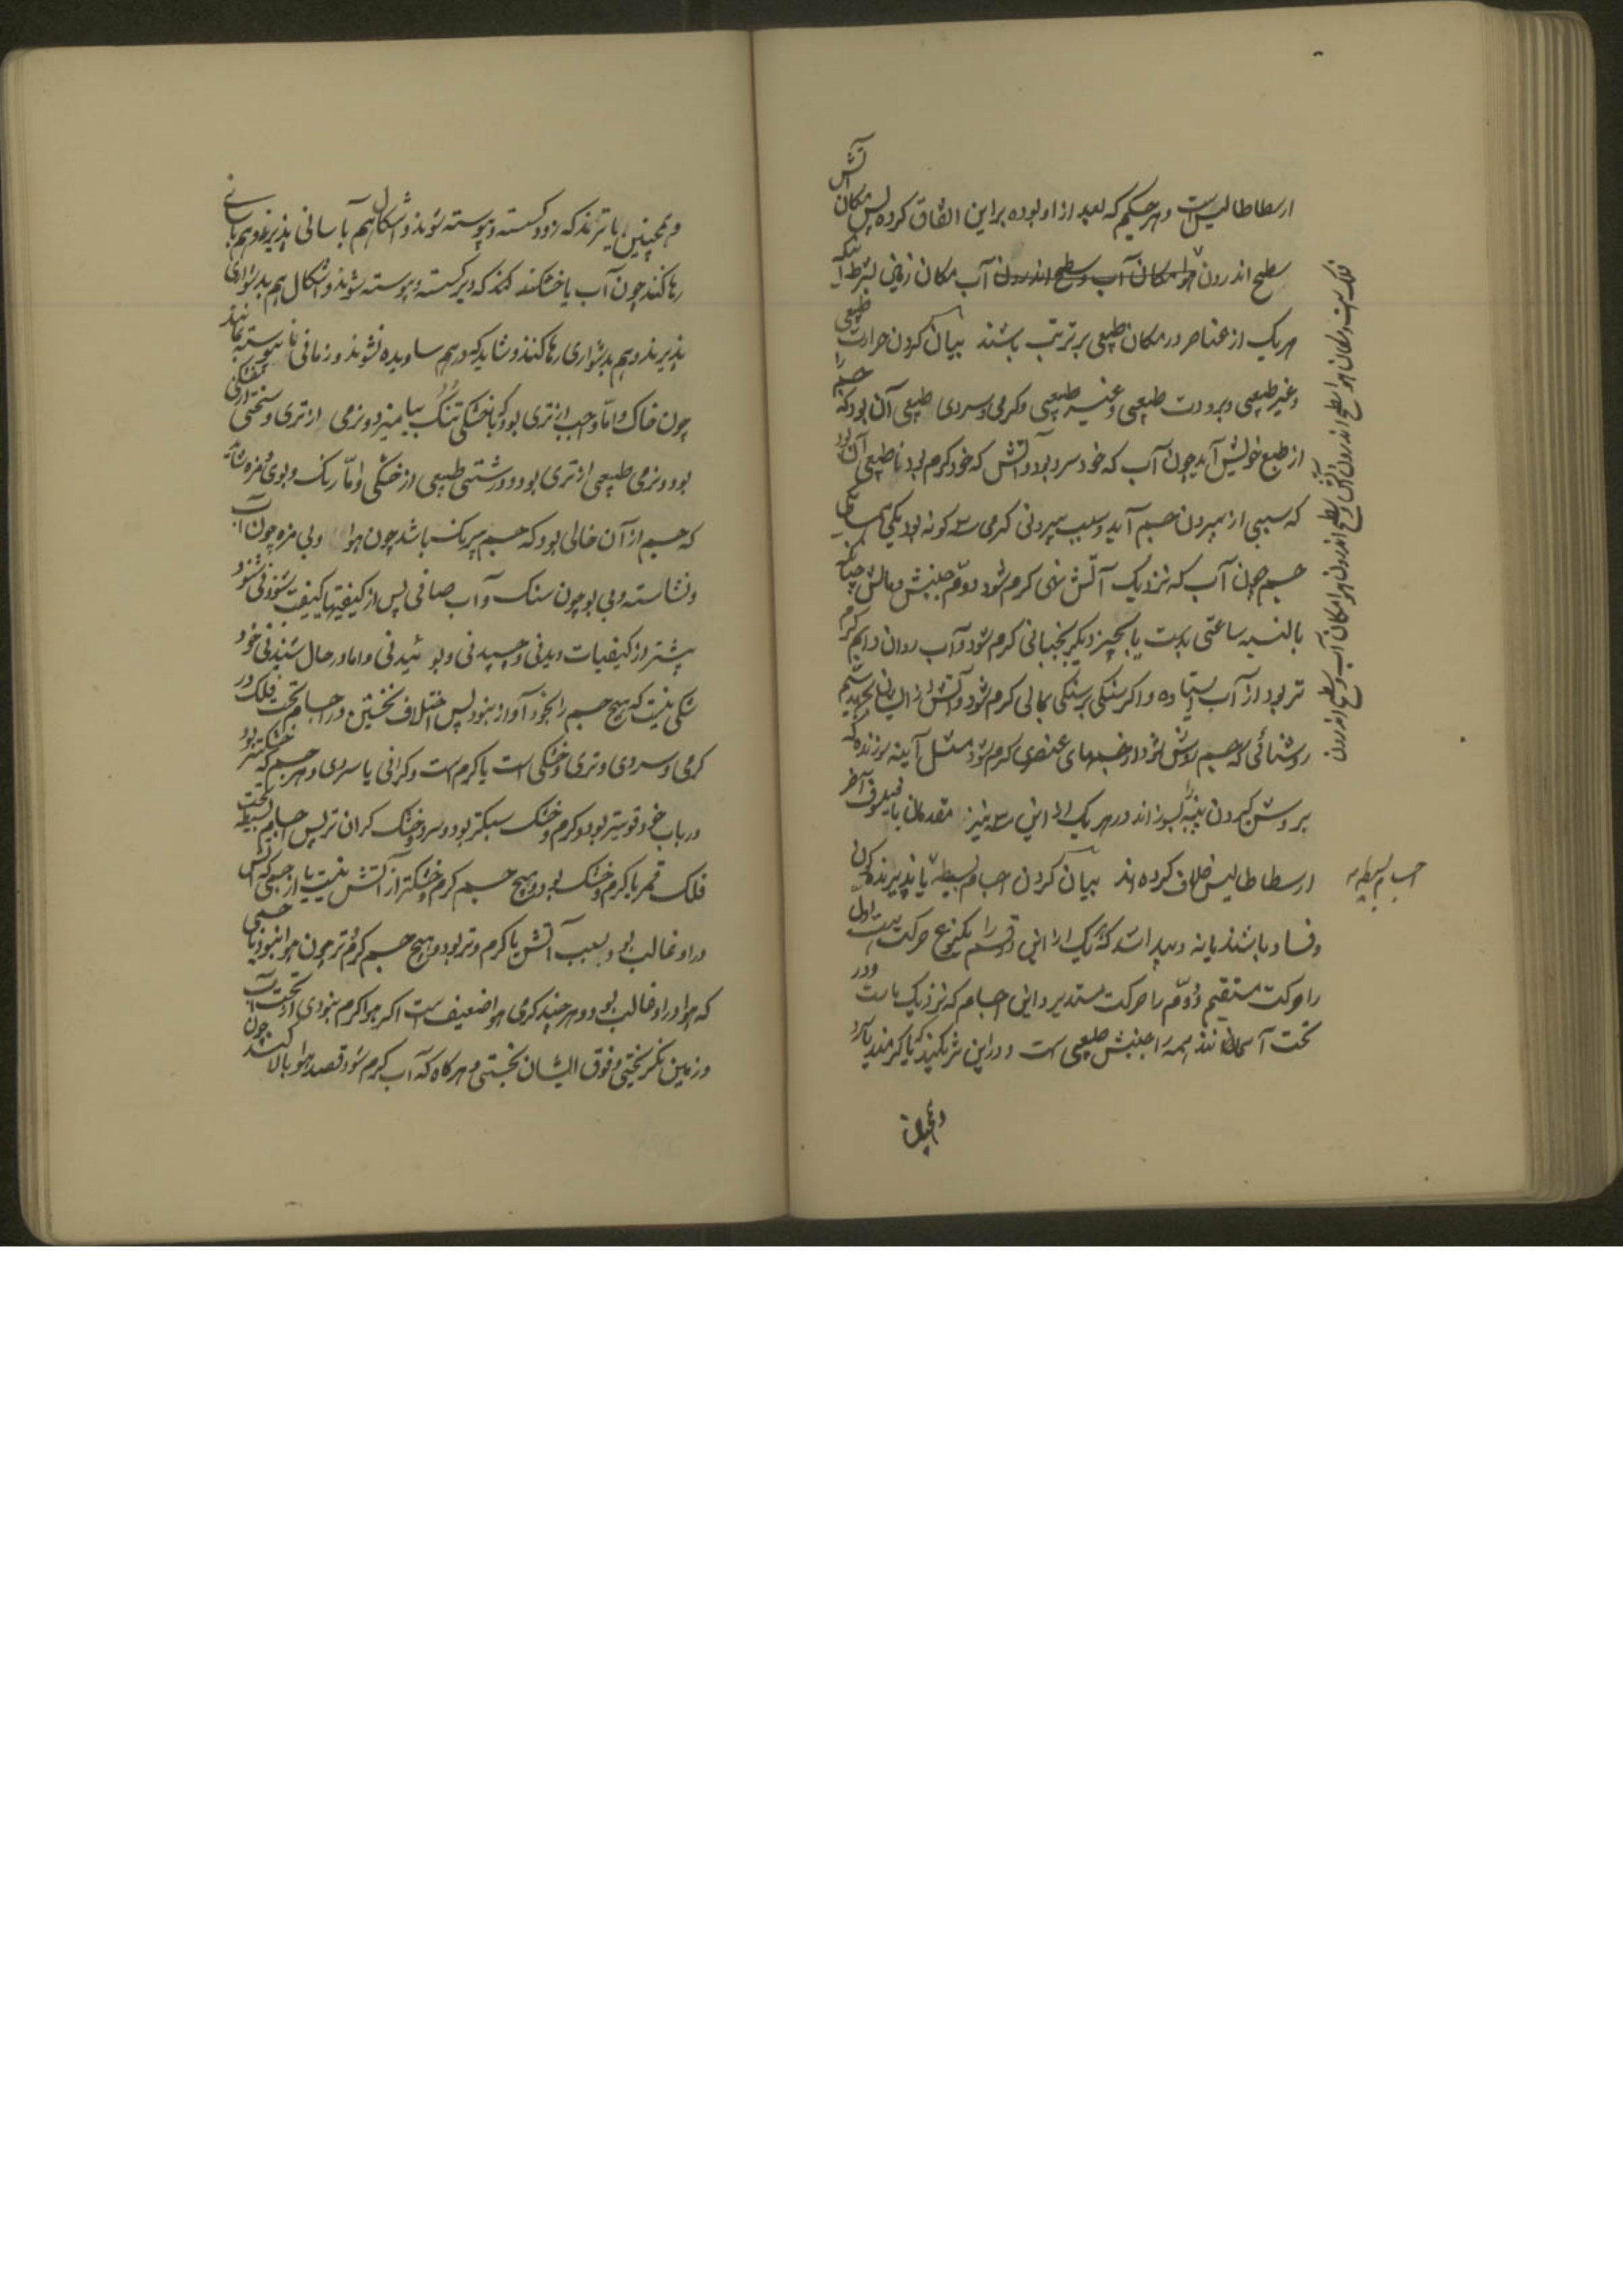 ارسطاطالیس است و هر حکیم که بعد از او بوده بر این اتفاق کرده پس مکان آتش
سطح اندرون هوا مکان آب و سطح اندرون آب مکان زمین بشرط آنکه
هر یک از عناصر در مکان طبیعی بر ترتیب باشند بیان کردن حرارت طبیعی
و غیر طبیعی و برودت طبیعی و غیر طبیعی و کرمی و سردی طبیعی آن بود که جسم را
از طبع خویش آید چون آب که خود سرد بود و آتش که خود کرم بود نا طبیعی آن بود
که سببی از بیرون جسم آید و سبب بیرونی کرمی سه کونه بود یکی
جسم چون آب که نزدیک آتش نهی کرم شود دوم جنبش و مالش چنانکه
ساعتی بدست یا بچیز دیکر بجنبانی کرم شود و آب روان دایم کرم
تر بود از آب ایستاده و اکر سنکی بر سنکی بمالی کرم شود و آتش از ایشان بجهد سیم
روشنائی که جسم روشن شود و جسمهای عنصری کرم شود مثل آینه سوزنده که
بروشن کردن پنبه را بسوزاند و در هر یک از این سه نیز متقدمان با فیلسوف آخر
ارسطاطالیس خلاف کرده اند بیان کردن اجسام بسیطه تا پذیرنده کون
و فساد باشند یا نه و بباید دانست که هر یک را از این دو قسم را یکنوع حرکت است اول
را حرکت مستقیم و دوم را حرکت مستدیر و این اجسام که نزدیک ماست و در
تحت آسمانند همه را جنبش طبیعی است و در این شریکند که یا کرمند یا سرد
و همچنین
فلک است و مکان هوا سطح اندرون آتش و سطح اندرون هوا مکان آب و سطح اندرون
اجسام بسیطه
و همچنین یا ترند که زود کسسته و پیوسته شوند و اشکال هم بآسانی پذیرند و هم بآسانی
رها کنند چون آب یا خشکند که دیر کسسته و پیوسته شوند و اشکال هم بدشواری
پذیرند و هم بدشواری رها کنند و شاید که درهم ساویده نشوند و زمانی نا پیوسته بمانند
چون خاک و اما چسب از تری بود که با خشکی تنک بیامیزد و نرمی از تری و سختی از خشکی
بود و نرمی طبیعی از تری بود و درشتی طبیعی از خشکی و اما رنک و بوی و مزه شاید
که جسم از آن خالی بود که جسم بیرنک باشد چون هوا و بی مزه چون آب
و نشاسته و بی بو چون سنک و آب صافی پس از کیفیتها کیفیت
پیشتر از کیفیات دیدنی و چسپدنی و بوئیدنی و اما در حال شنیدنی خود
شکی نیست که هیچ جسم را بخود آواز نبود پس اختلاف نخستین در اجسام تحت فلک در
کرمی و سردی و تری و خشکی است یا کرم است و کرانی با سردی و هر جسم که خشکتر بود
در باب خود قویتر بود و کرم و خشک سبکتر بود و سرد و خشک کران تر پس اجسام بسیطه تحت
فلک قمر یا کرم و خشک بود و هیچ جسم کرم و خشکتر از آتش نیست یا از جسمی که آتش
در او غالب بود بسبب آتش یا کرم و تر بود و هیچ جسم کرم و تر چون هوا نبود یا جسمی
که هوا در او غالب بود و هر چند کرمی هوا ضعیف است اکر هوا کرم نبودی از تحت آب
و زمین نکریختی و فوق ایشان نجستی و هر کاه که آب کرم شود قصد هوا و بالا کند چون